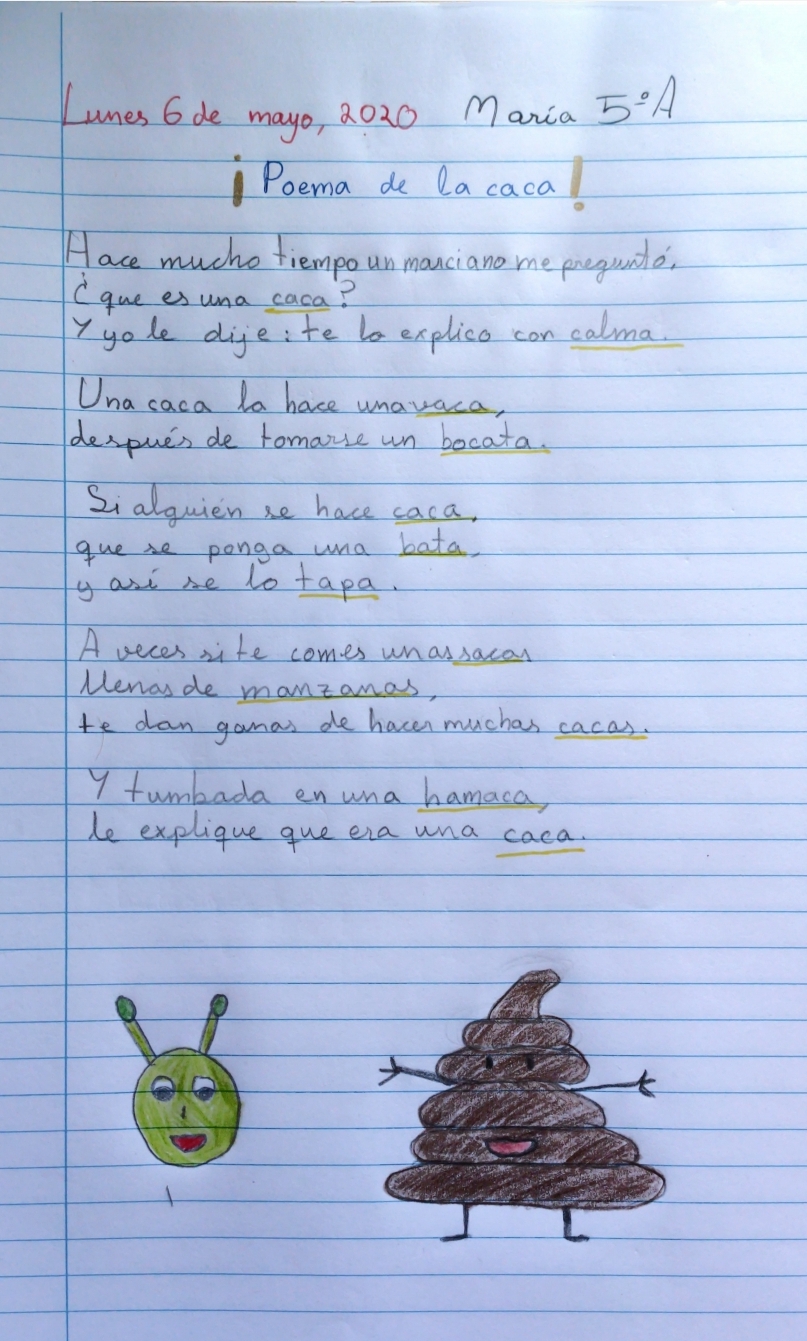 Lunes 6 de mayo, 2020 María 5ºA
¡Poema de la caca!
Hace mucho tiempo un marciano me preguntó,
¿que es una caca?
Y yo le dije: te lo explico con calma.
Una caca la hace una vaca,
después de tomarse un bocata.
Si alguién se hace caca,
que se ponga una bata,
y así se lo tapa.
A veces si te comes unas sacas
llenas de manzanas,
te dan ganas de hacer muchas cacas.
Y tumbada en una hamaca,
le explique que era una caca.